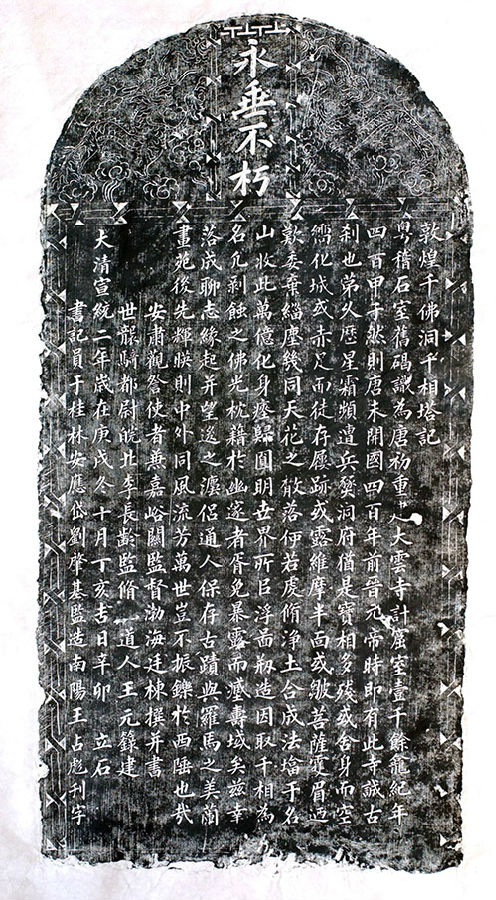 永垂不朽
敦煌千佛洞千相塔記
粤稽石室舊碣識為唐初重大雲寺計窟室壹千餘龕紀年
四百甲子然則唐未開國四百年前晉元帝時即有此寺誠古
刹也第久歷星霜頻遭兵燹洞府猶是寶相多殘或舍身而空
化城或赤足而徒存履跡或露維摩半面或皺菩薩雙眉過
歎委棄緇塵幾同天花之散落便若處脩淨土合成法㙮于名
山收此萬億化身瘞歸圓明世界所㠯浮啚剏造因取千相為
名凢剥蝕之佛光枕籍於幽邃者胥免暴露而藏壽域矣兹幸
落成聊志緣起并望逖之灋侣通人保存古蹟與羅馬之美蘭
畫苑後先輝暎則中外同風流芳萬世豈不振鑠於西陲也哉
安肅觀詧使者兼嘉峪關監督渤海廷棟撰并書
世襲騎都尉皖北李長齡監脩 道人王元籙建
大清宣統二年歲在庚戌冬十月丁亥吉日辛卯 立石
書記員于桂林安應岱劉肇基監造南陽王占彪刊字